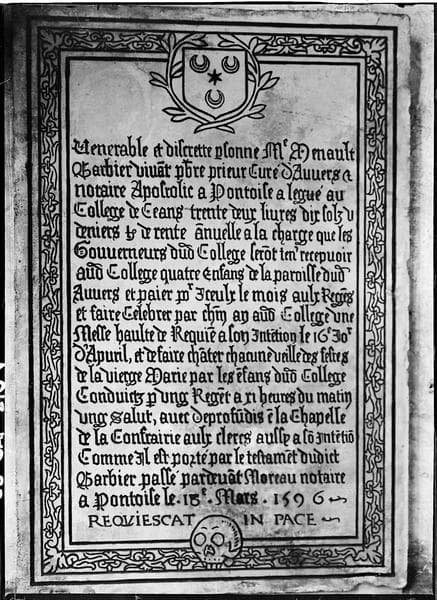 Venerable et discrette psonne Me Menault
Barbier vivãt pbre prieur Curé d'Auvers &
notaire Apostolic a Pontoise a legué au
College de Ceans trente deux livres dix solz v
deniers t de rente ãnuelle a la charge que les
Gouverneurs dud College serõt ten' recepvoir
aud College quatre Enfans de la paroisse dud
Auvers et paier pr Iceulx le mois aulx Regẽs
et faire Celebrer par chũ ãn aud College une
Messe haulte de Requiẽ a son Intẽtion le 16e Jor
d'Apvril, et de faire chãter chacune veille des festes
de la vierge Marie par les ẽfans dud College
Conduictz p ung Regẽt a xi heures du matin
ung Salut, avec Deprofũdis ẽ la Chapelle
de la Confrairie aulx clercs aussy a sõ Intẽtiõ
Comme Il est porté par le testamẽt dudict
Barbier passé pardevãt Moreau notaire
a Pontoise le .18e. Mars . 1596
REQVIESCAT IN PACE